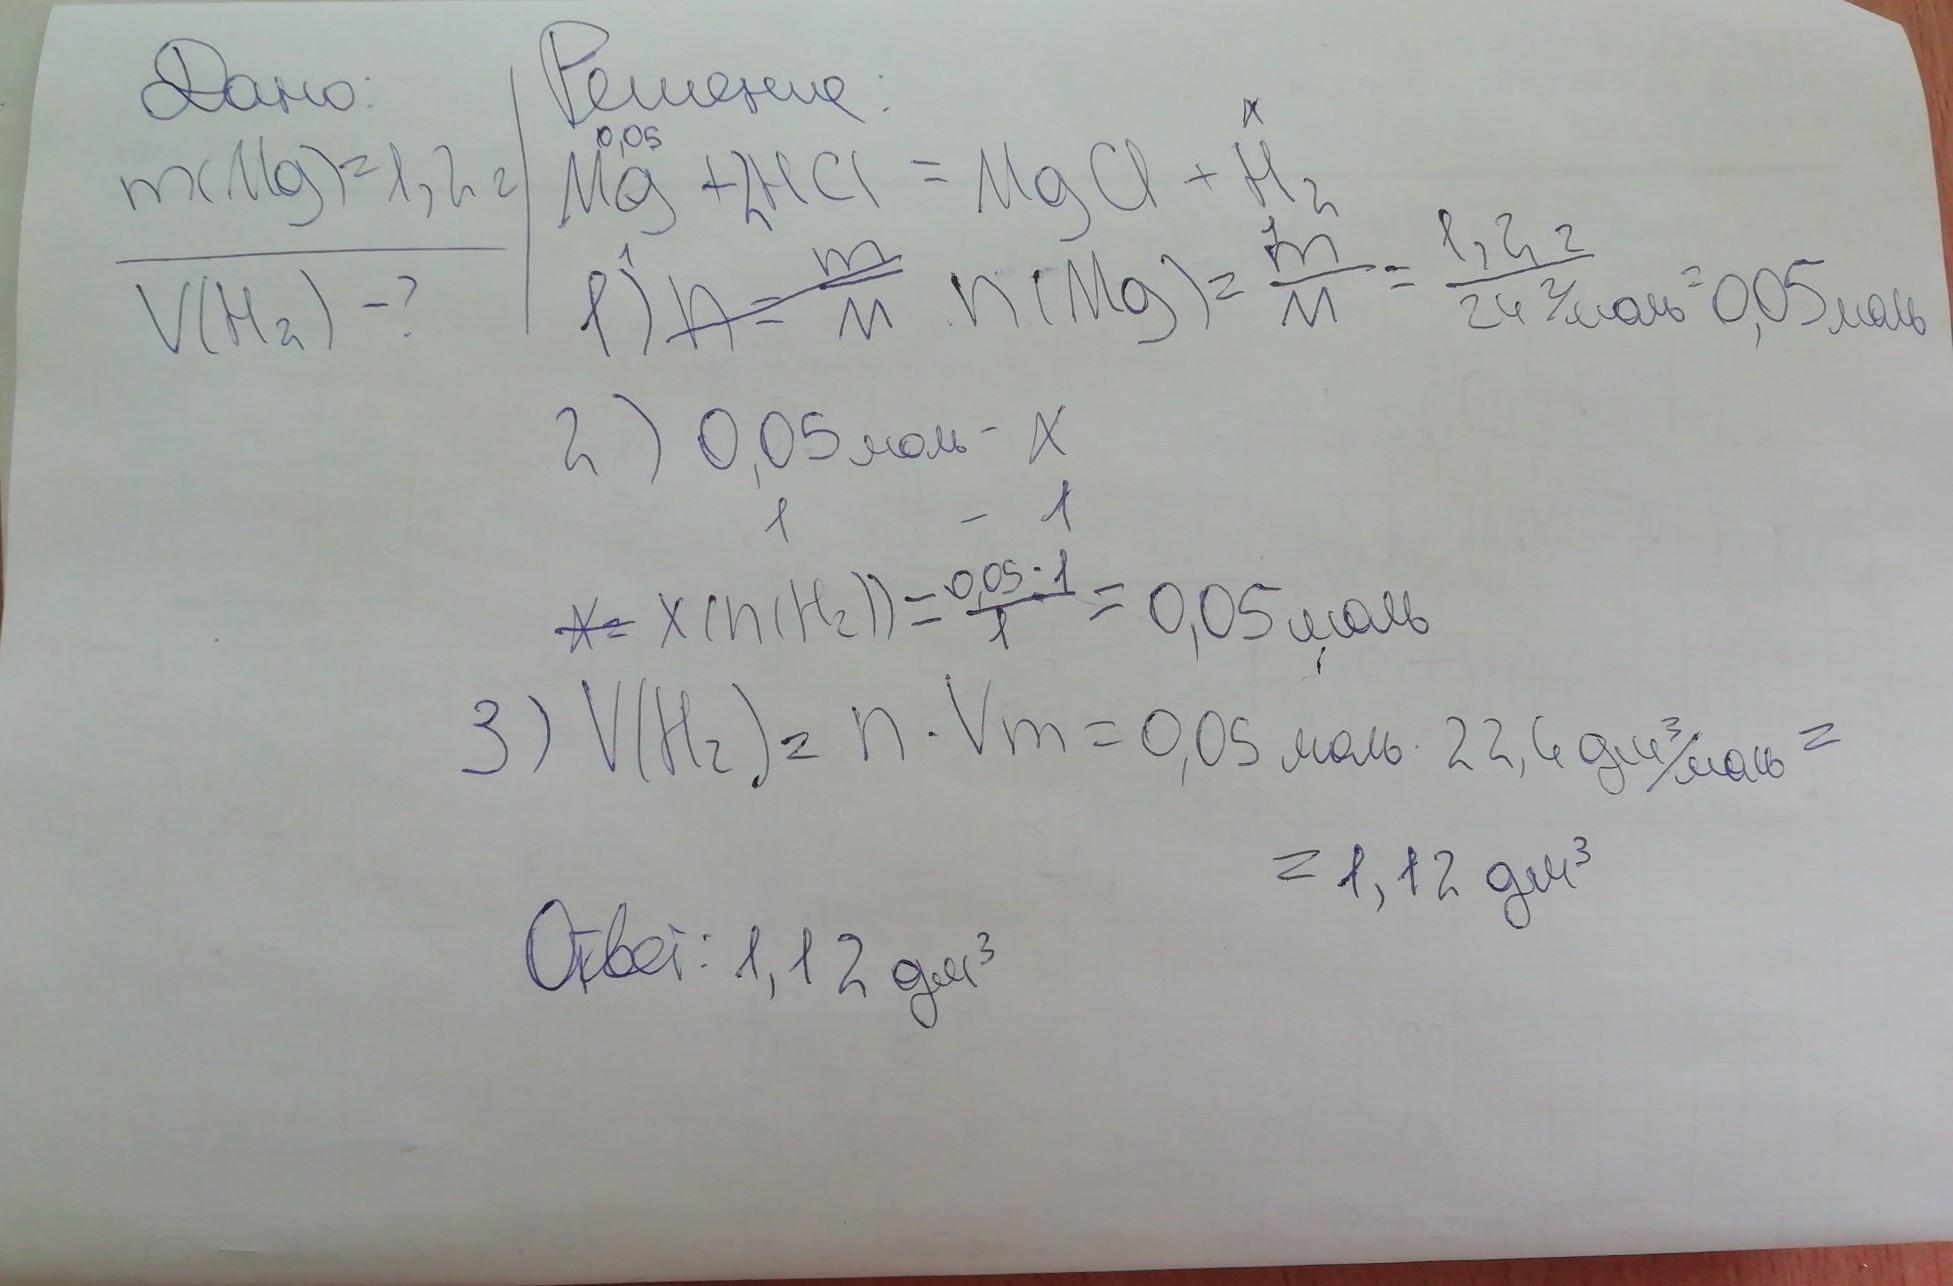 Дано:
m(Mg)=1,2 г
V(H₂) - ?
Решение:
0,05 x
Mg + 2HCl = MgCl + H₂
1 1
1) n = m/M n(Mg) = m/M = 1,2 г / 24 г/моль = 0,05 моль
2) 0,05 моль - x
1 - 1
x = x(n(H₂)) = 0,05·1/1 = 0,05 моль
3) V(H₂) = n · Vm = 0,05 моль · 22,4 дм³/моль =
= 1,12 дм³
Ответ: 1,12 дм³